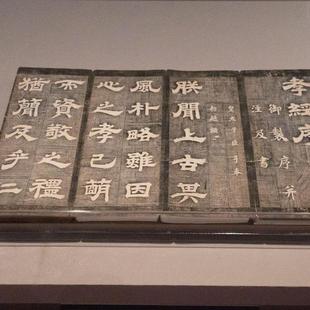 孝經序
御製序并
注及書
皇太子臣亨奉
勅題額
朕聞上古其
風朴略雖因
心之孝已萌
而資敬之禮
猶簡及乎